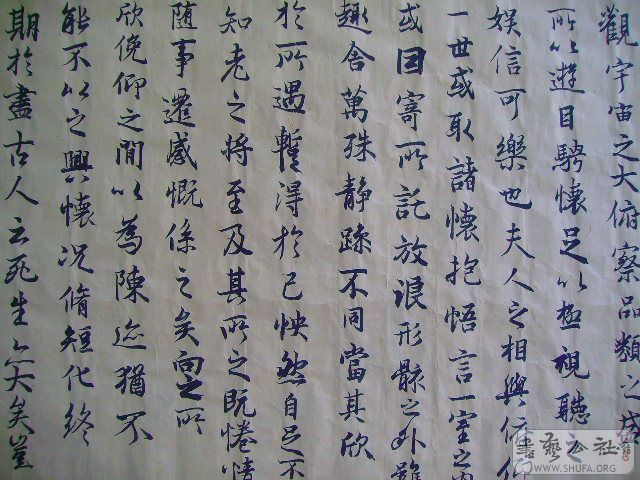 觀宇宙之大俯察品類之盛
所以遊目騁懷足以極視聽之
娛信可樂也夫人之相與俯仰
一世或取諸懷抱悟言一室之內
或因寄所託放浪形骸之外雖
趣舍萬殊静躁不同當其欣
於所遇暫得於己怏然自足不
知老之將至及其所之既惓情
随事遷感慨係之矣向之所
欣俛仰之間以為陳迹猶不
能不以之興懷况脩短化終
期於盡古人云死生亦大矣豈
書藝公社
WWW.SHUFA.ORG